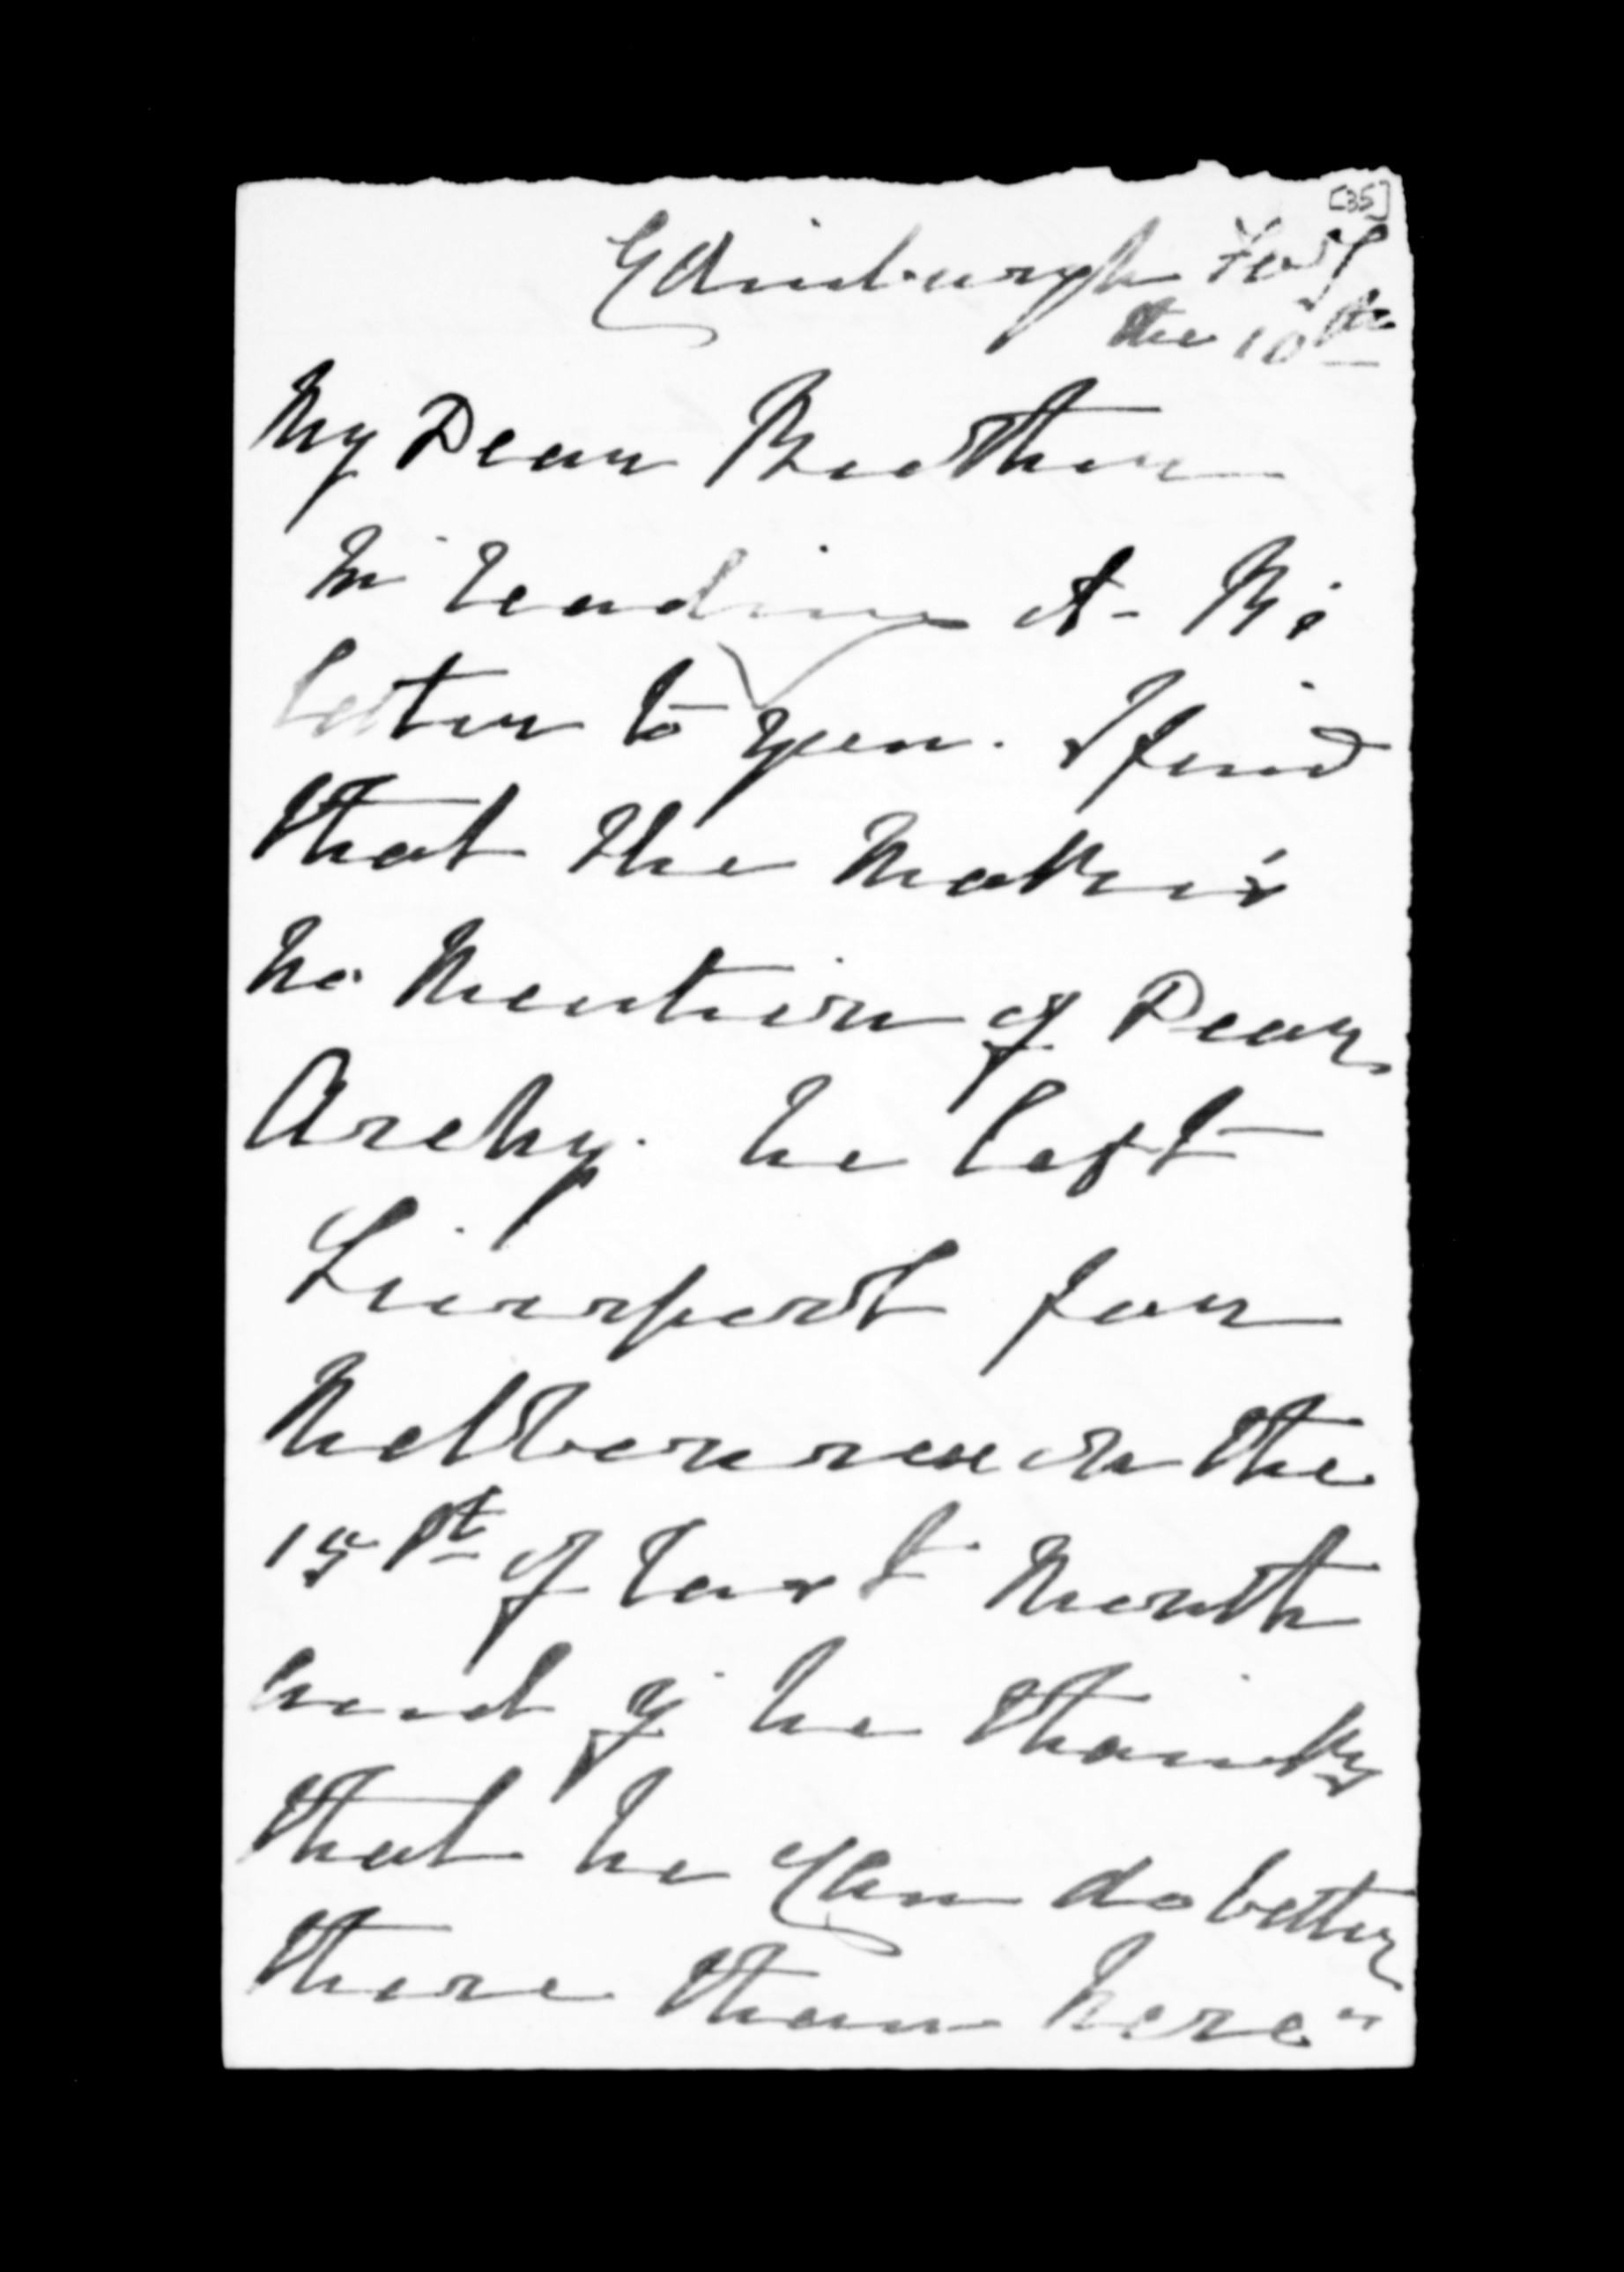 [35]
Edinburgh Feby
the 10th
My Dear Brother
In reading A. R.
letter to you. I find
that she makes
no mention of Dear
Archy. he left
Liverpool for
Melbourne on the
15th of last Month
he thinks
that he Can do better
there than here